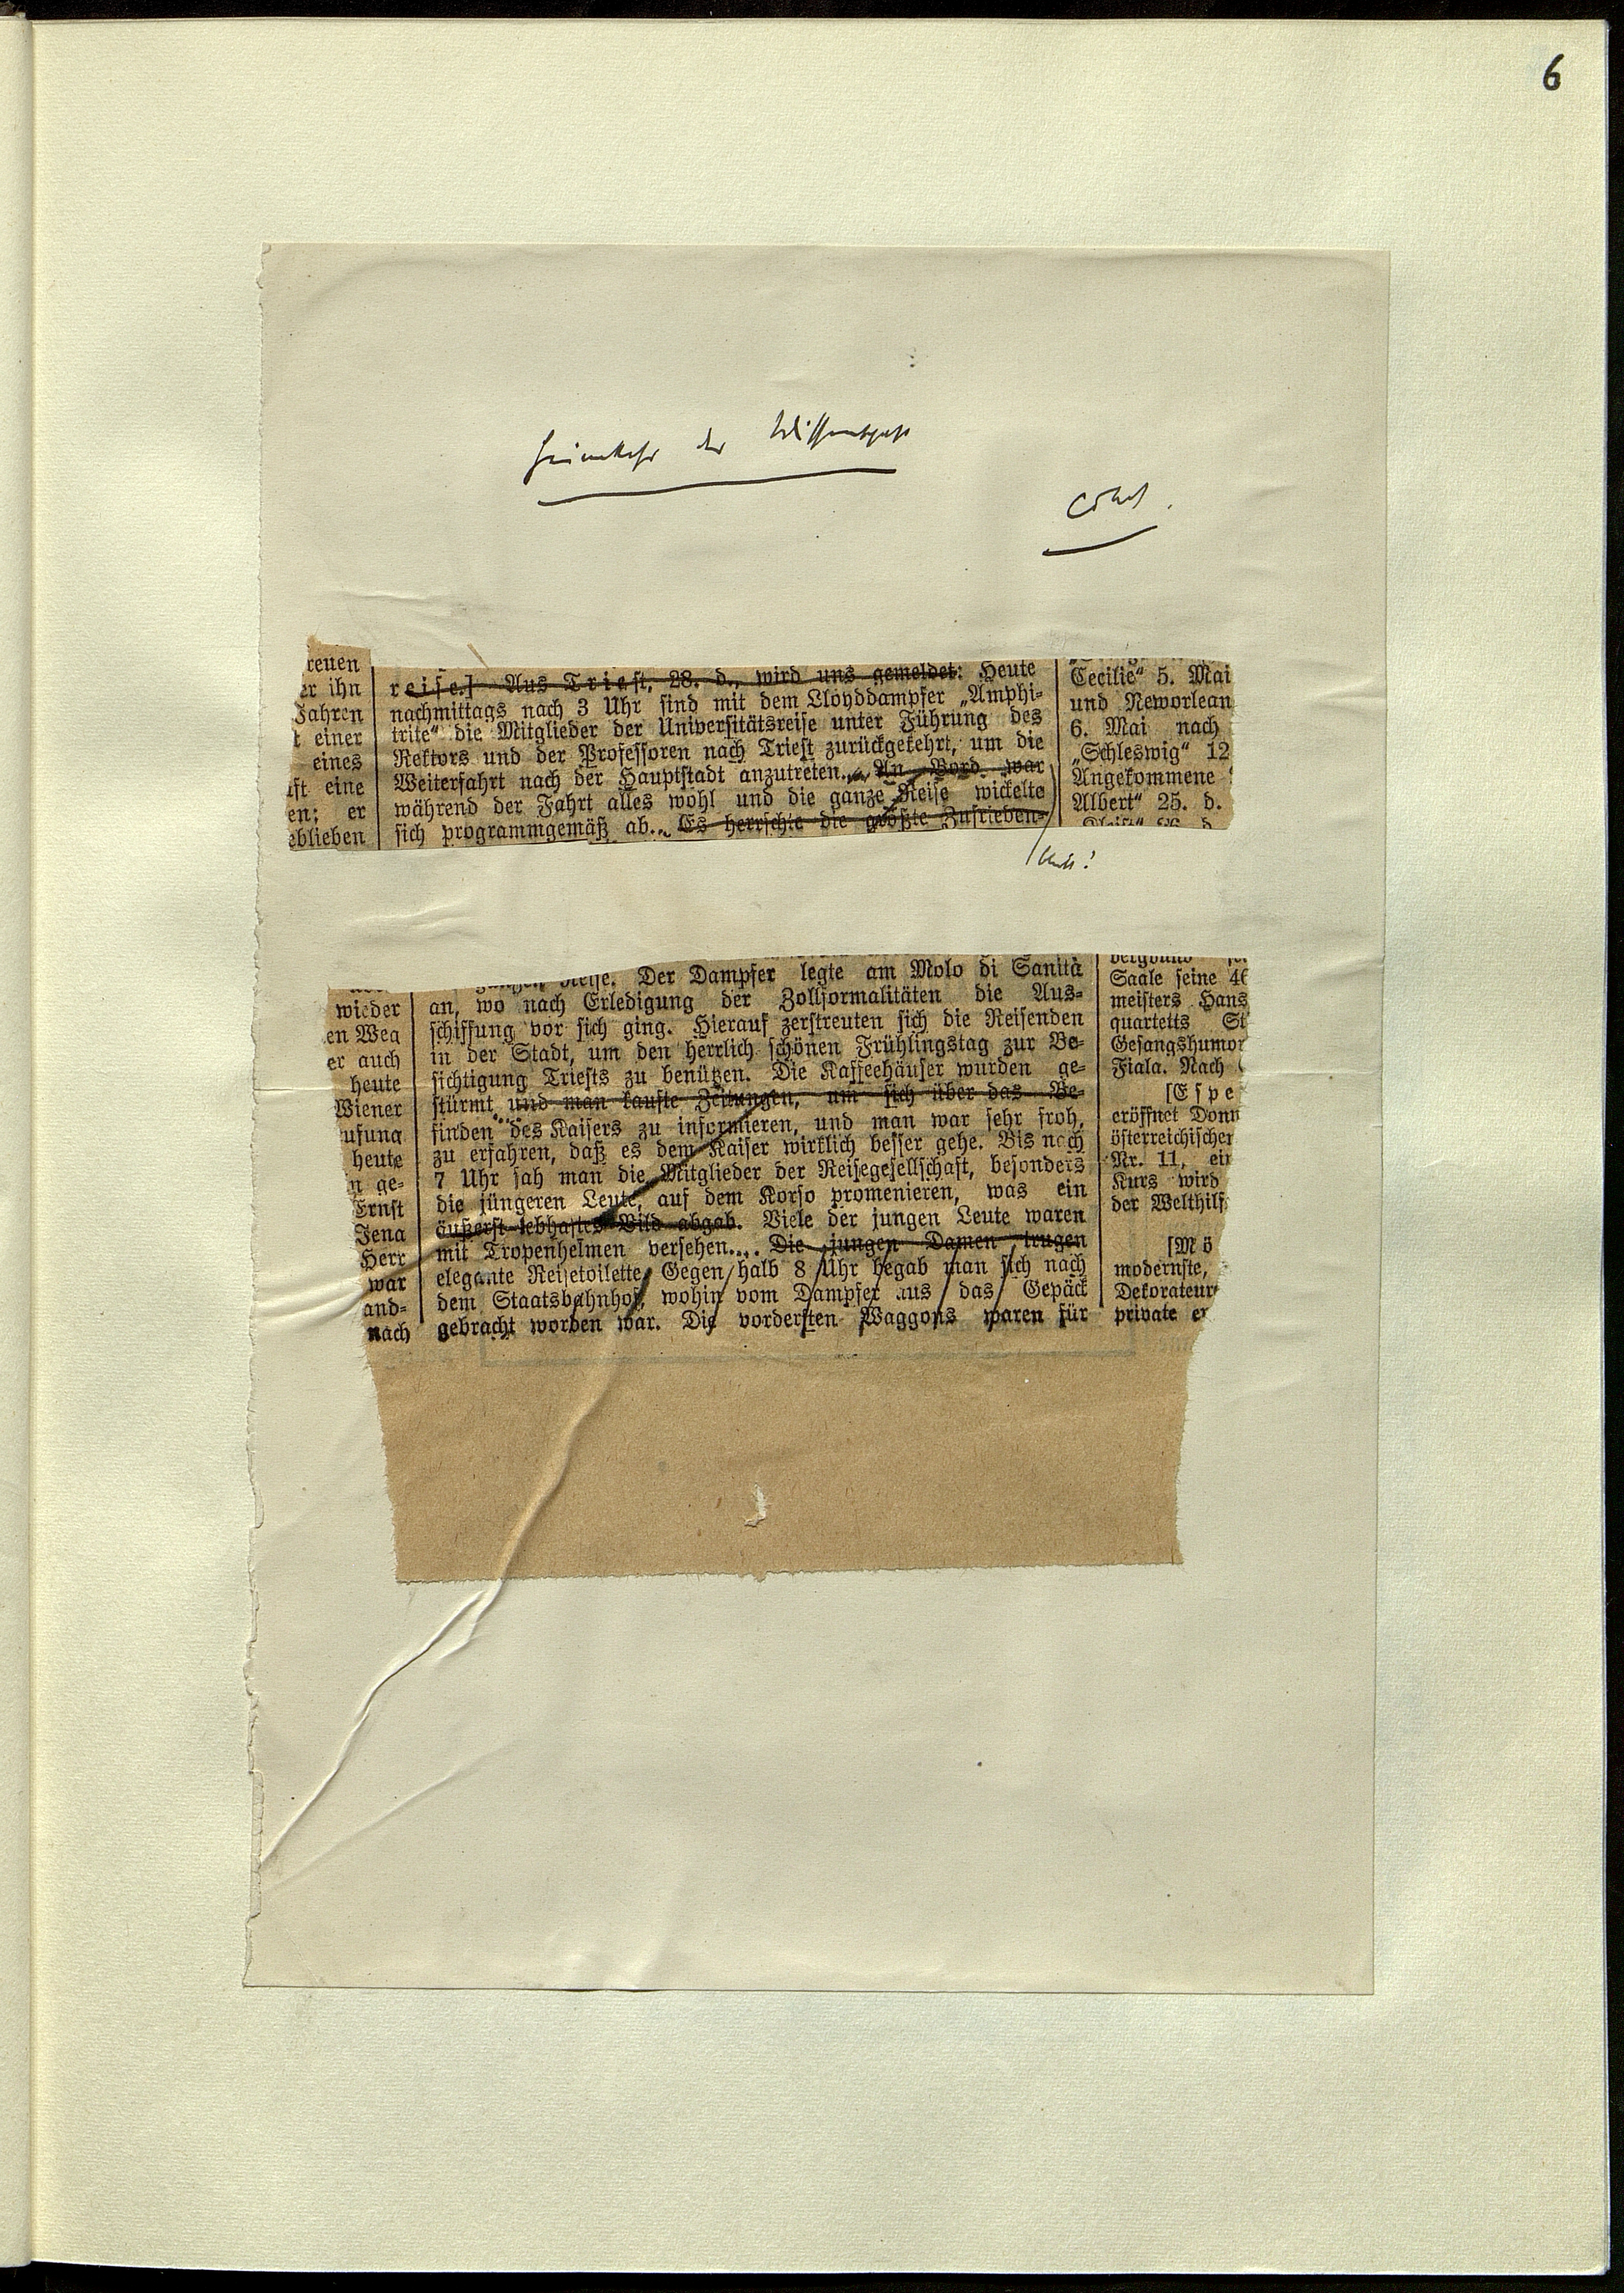 6
Heimkehr der Wissenschaft
reuen
er ihn
Jahren
t einer
eines
ft eine
en; er
eblieben
reise.] Aus Triest, 28. d., wird uns gemeldet: Heute
nachmittags nach 3 Uhr sind mit dem Lloyddampfer „Amphi-
trite“ die Mitglieder der Universitätsreise unter Führung des
Rektors und der Professoren nach Triest zurückgekehrt, um die
Weiterfahrt nach der Hauptstadt anzutreten. An Bord war
während der Fahrt alles wohl und die ganze Reise wickelte
sich programmgemäß ab. Es herrschte die größte Zufrieden-
Cecilie“ 5. Mai
und Neworlean
6. Mai nach
„Schleswig“ 12
Angekommene
Albert“ 25. d.
wieder
en Weg
er auch
heute
Wiener
ufung
heute
n ge-
Ernst
Jena
Herr
war
and-
nach
Reise. Der Dampfer legte am Molo di Sanità
an, wo nach Erledigung der Zollformalitäten die Aus-
schiffung vor sich ging. Hierauf zerstreuten sich die Reisenden
in der Stadt, um den herrlich schönen Frühlingstag zur Be-
sichtigung Triests zu benützen. Die Kaffeehäuser wurden ge-
stürmt und man kaufte Zeitungen, um sich über das Be-
finden des Kaisers zu informieren, und man war sehr froh,
zu erfahren, daß es dem Kaiser wirklich besser gehe. Bis nach
7 Uhr sah man die Mitglieder der Reisegesellschaft, besonders
die jüngeren Leute, auf dem Korso promenieren, was ein
äußerst lebhaftes Bild abgab. Viele der jungen Leute waren
mit Tropenhelmen versehen.... Die jungen Damen trugen
elegante Reisetoilette. Gegen halb 8 Uhr begab man sich nach
dem Staatsbahnhof, wohin vom Dampfer aus das Gepäck
gebracht worden war. Die vordersten Waggons waren für
Saale seine 46
meisters Hans
quartetts St
Gesangshumor
Fiala. Nach
[Espe
eröffnet Donn
österreichischer
Nr. 11, ein
Kurs wird
der Welthilf
[Mö
modernste,
Dekorateur
private er